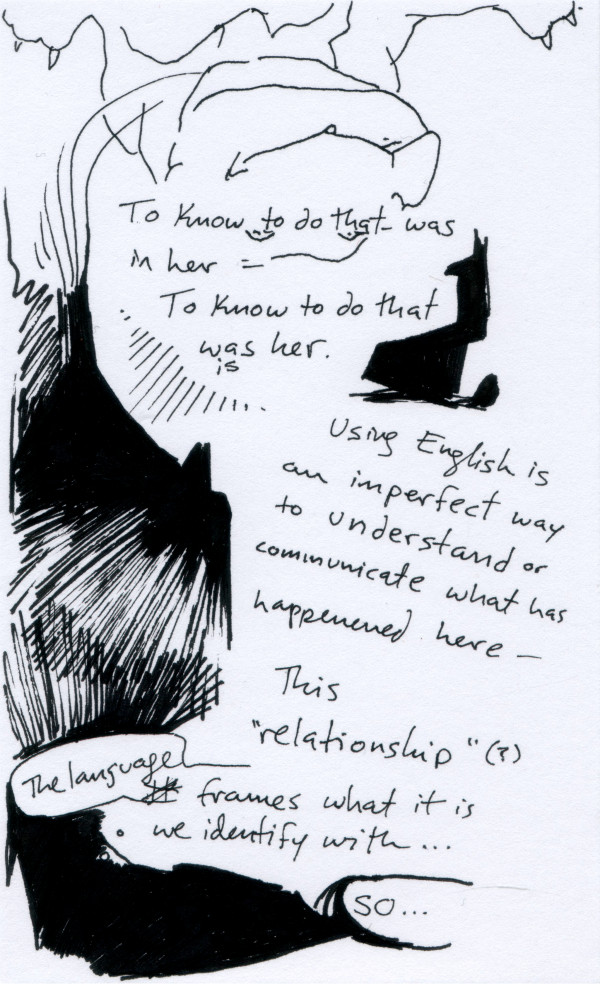 To Know to do that was
in her =
To Know to do that
was her.
is
Using English is
an imperfect way
to understand or
communicate what has
happenened here —
This
"relationship" (?)
The language
frames what it is
we identify with...
SO...